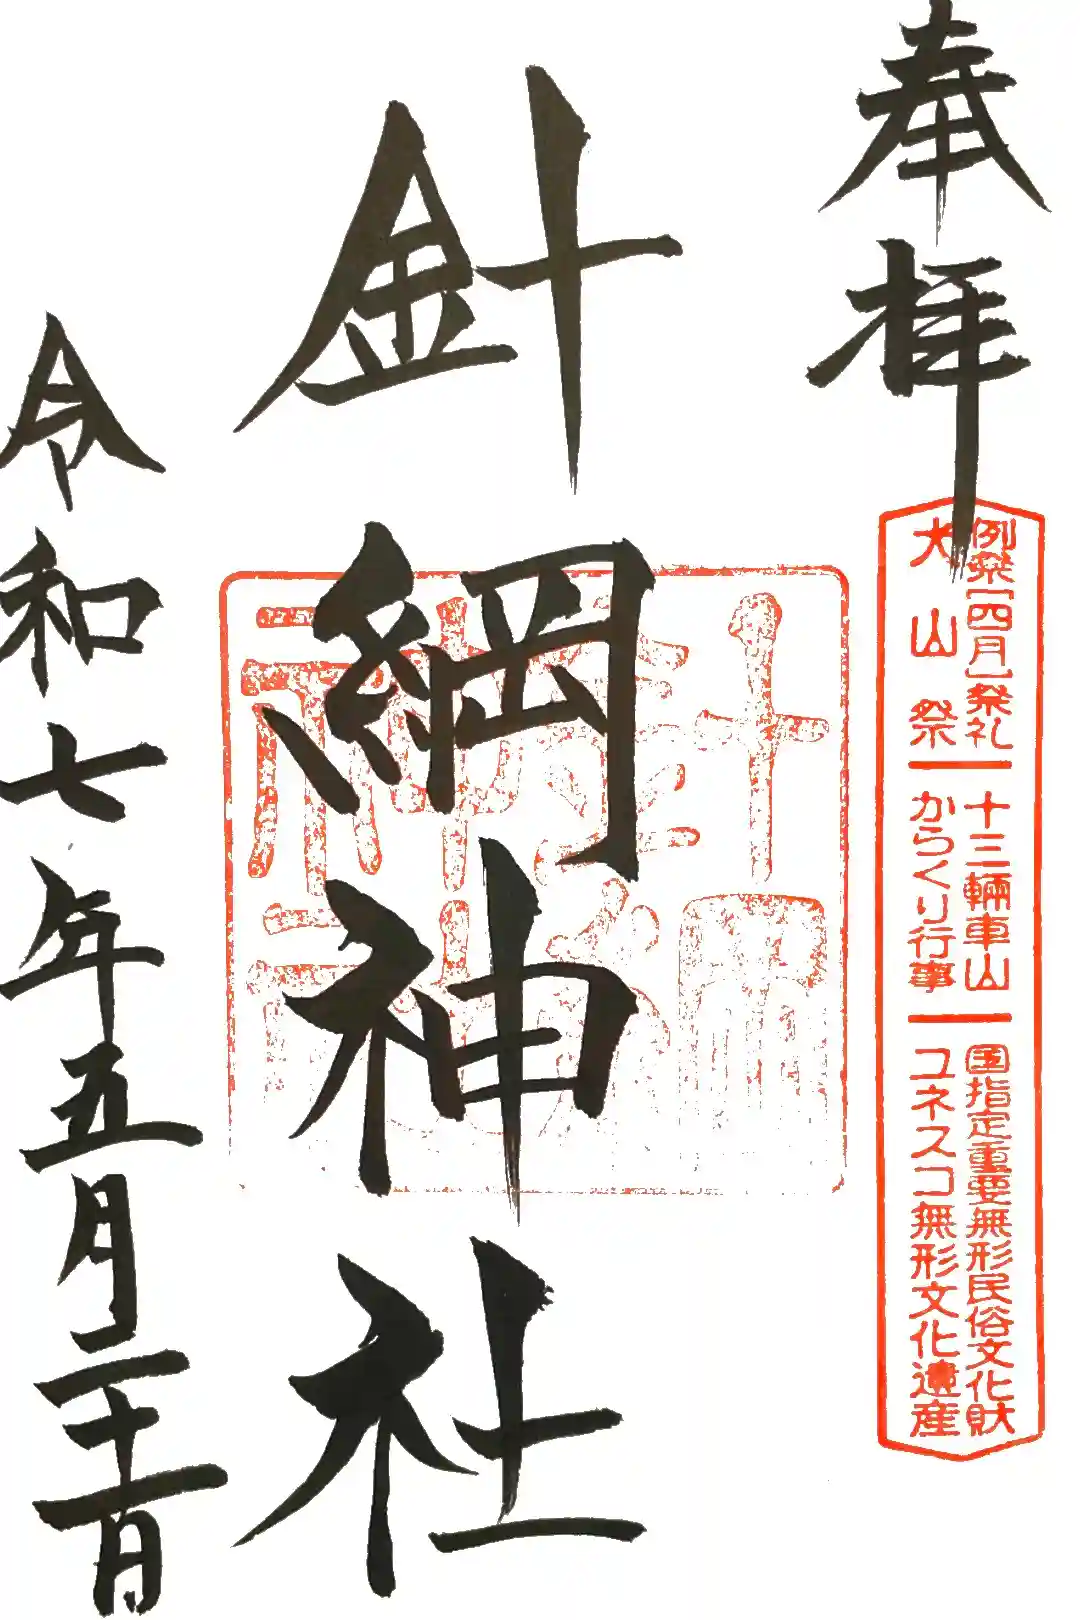 奉拝
例祭[四月]祭礼 十三輛車山 国指定重要無形民俗文化財
犬山祭 からくり行事 ユネスコ無形文化遺産
針綱神社
針綱
神社
令和七年五月二十一日